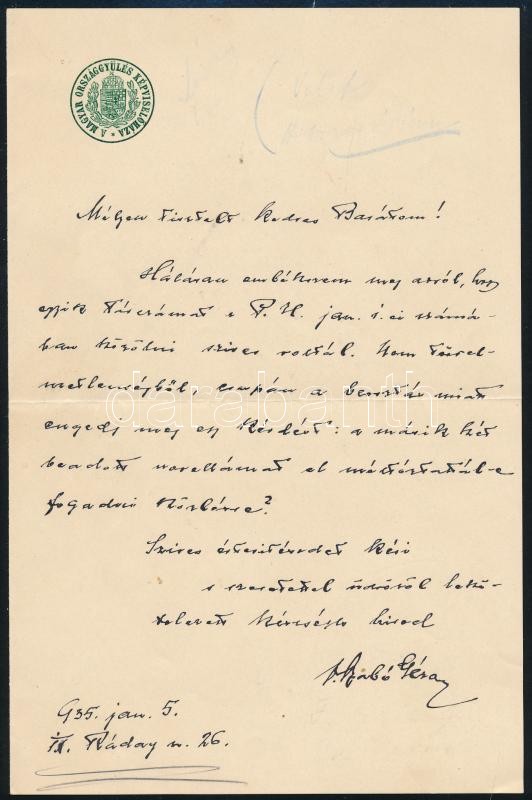 A MAGYAR ORSZÁGGYÜLÉS KÉPVISELŐHÁZA
Mélyen tisztelt kedves Barátom!
Hálásan emlékezem meg arról, hogy
egyik tárcámat a P. H. jan. 1.-ei számá-
ban közölni szives voltál. Nem türel-
metlenségből, csupán a miatt
engedj meg egy kérdést: a másik két
beadott novellámat el méltóztatál-e
fogadni közlésre?
Szives értesitésedet kéri
s szeretettel üdvözöl
hived
Szabó Géza
935. jan. 5.
IX. Ráday u. 26.
darabanth